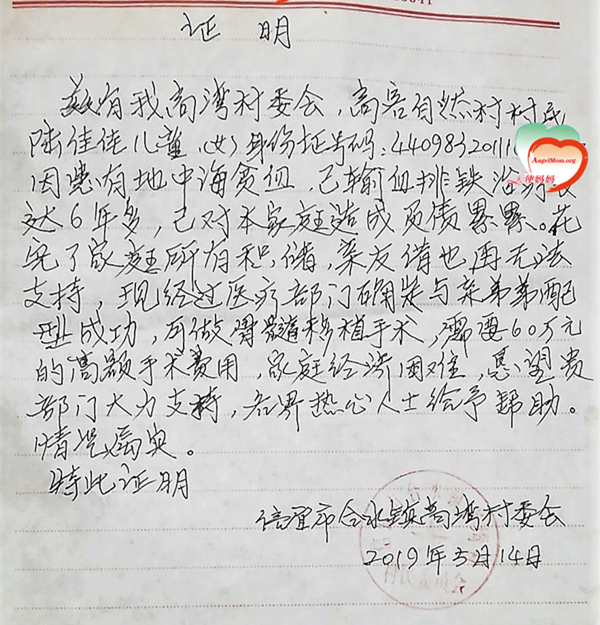 证 明
兹有我高湾村委会,高客自然村村民
陆佳佳儿童,(女)身份证号码:44098320111
AngelMom.org
天使妈妈
因患有地中海贫血,已输血排铁治疗长
达6年多,已对本家庭造成负债累累。花
完了家庭所有积储,亲友借也再无法
支持,现经过医疗部门确定与亲弟弟配
型成功,可做骨髓移植手术,需要60万元
的高额手术费用,家庭经济困难,恳望贵
部门大力支持,各界热心人士给予帮助。
情况属实。
特此证明
信宜市合水镇高湾村委会
2019年3月14日